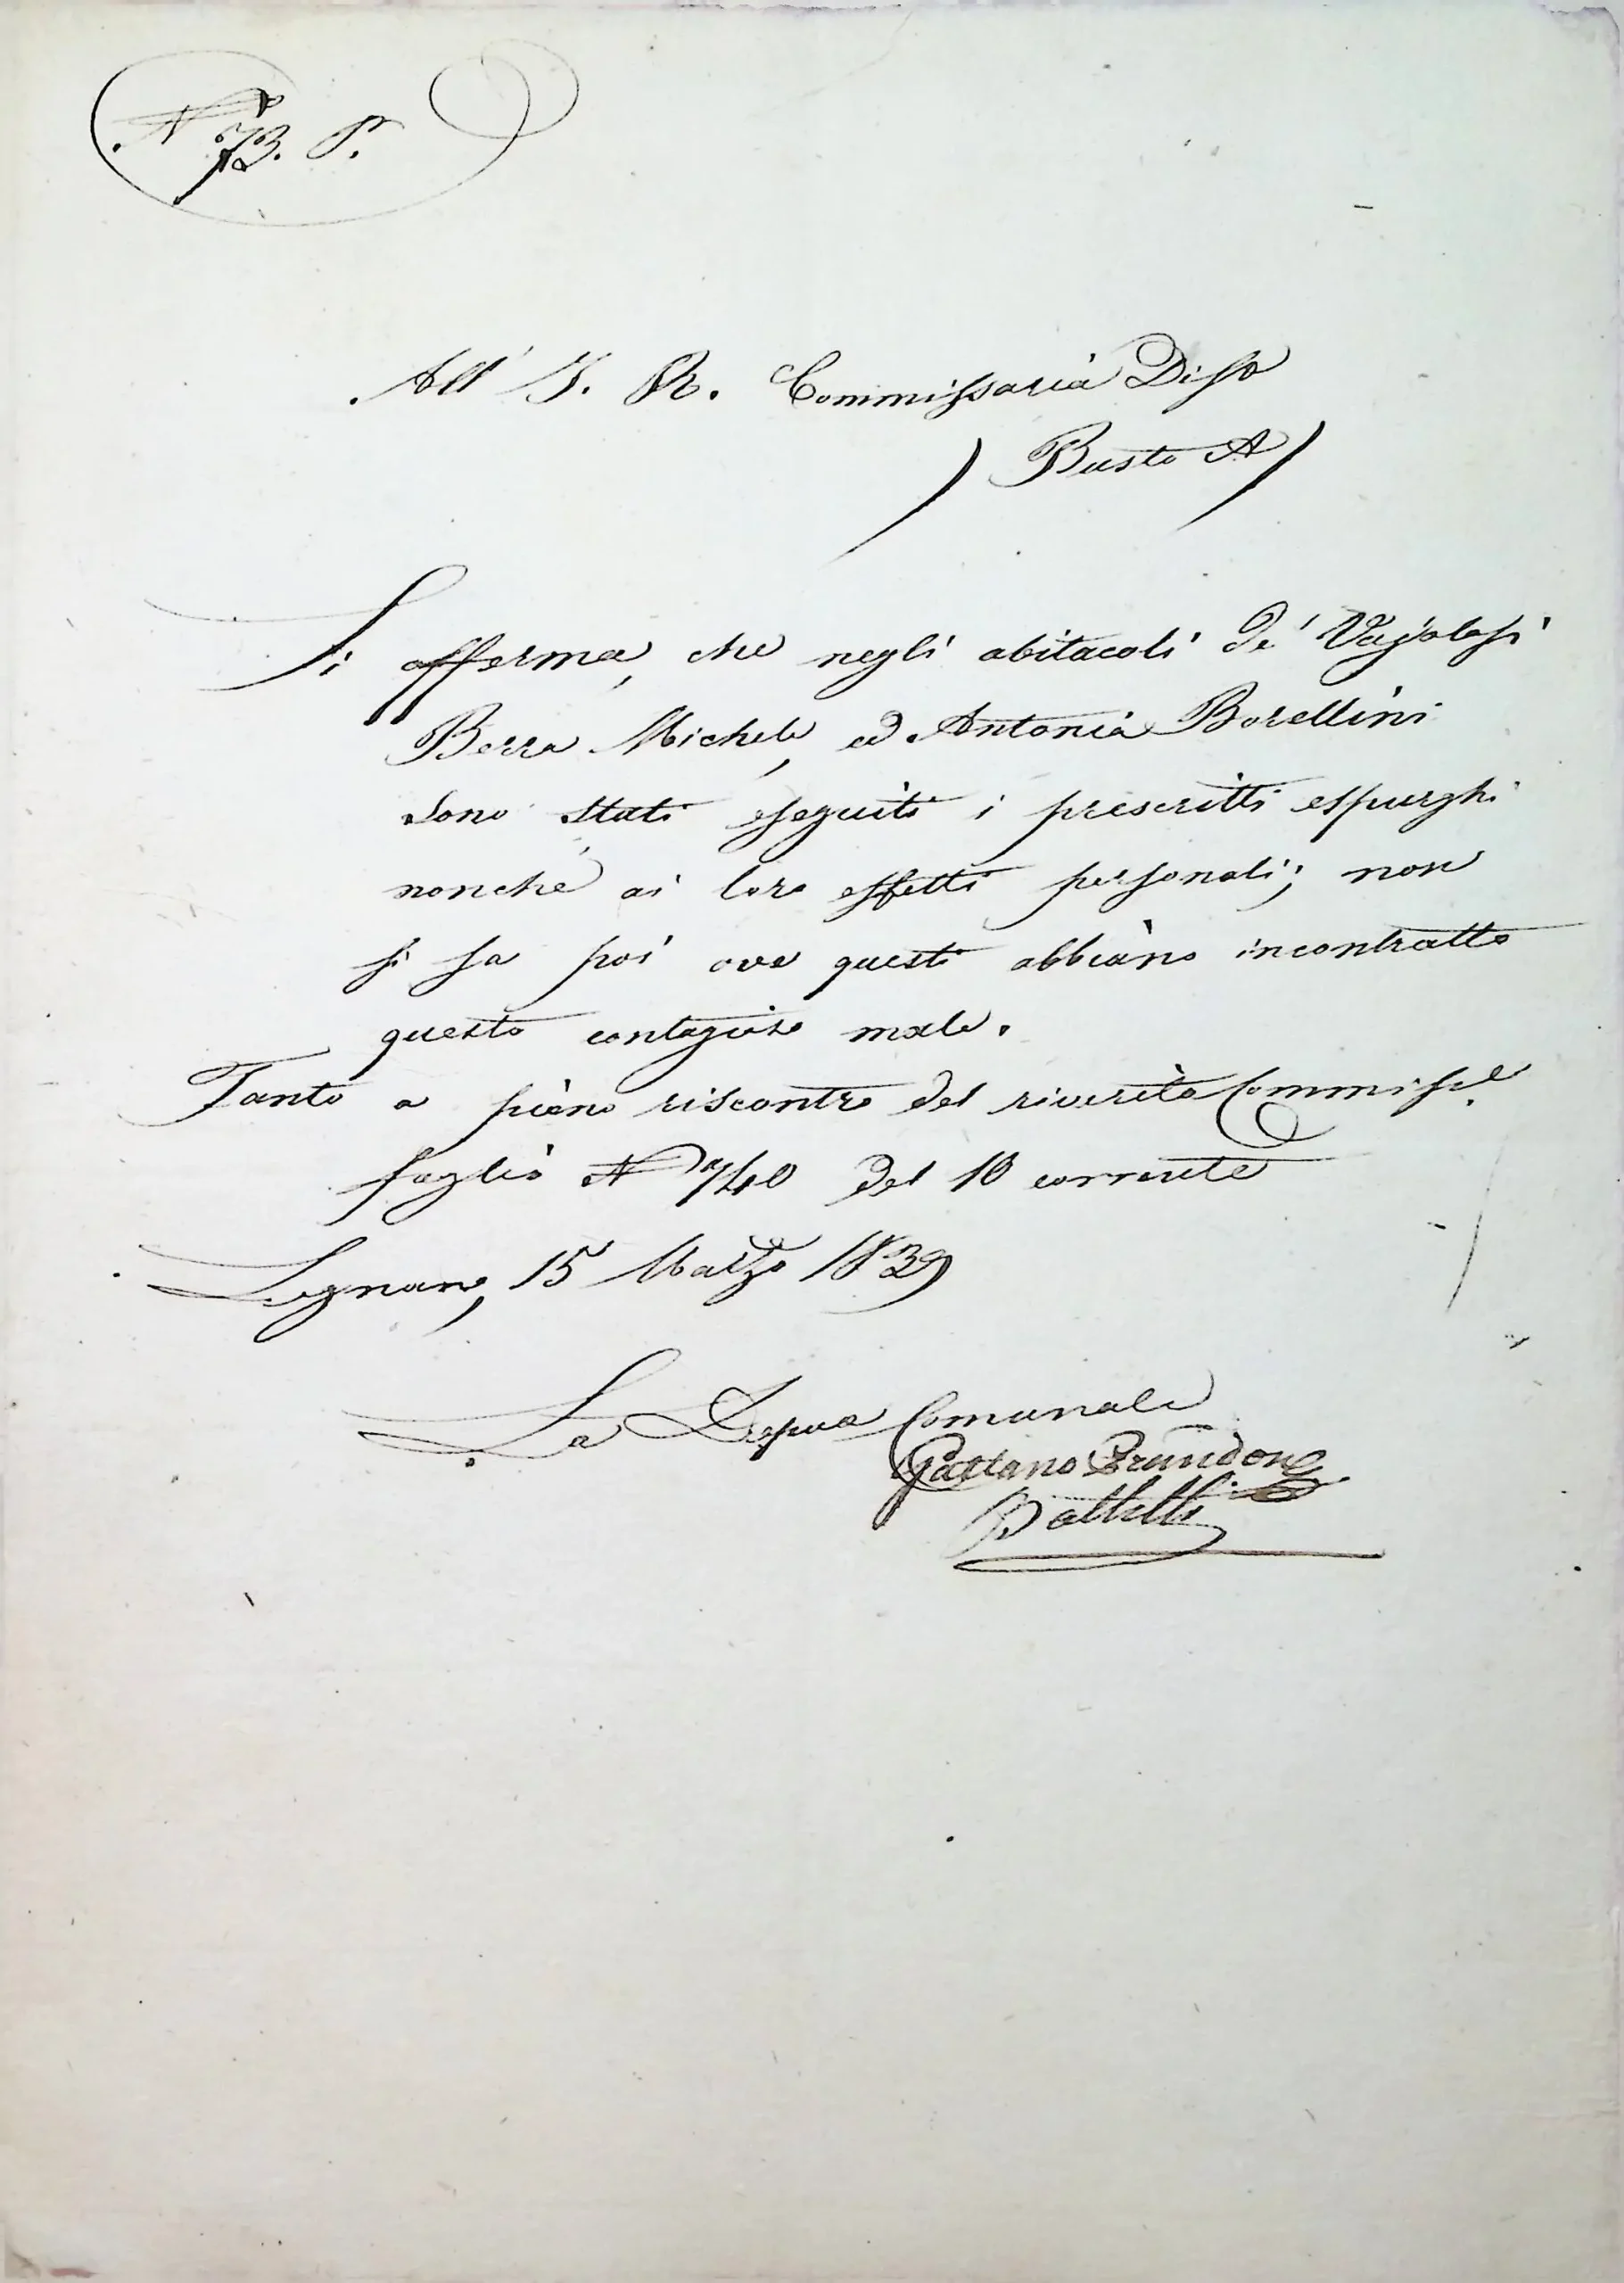 N 73. P.
All' I. R. Commissaria Disto
Busto A
Si afferma, che negli abitacoli de' Vajolosi
Berra Michele, ed Antonia Borellini
sono stati eseguiti i prescritti espurghi
nonche ai loro effetti personali; non
si sa poi ove questi abbiano incontratto
questo contagioso male.
Tanto a pieno riscontro del riverito Commissle
foglio N 740 del 10 corrente
Legnano, 15 Marzo 1839
La Depne Comunale
Gaetano